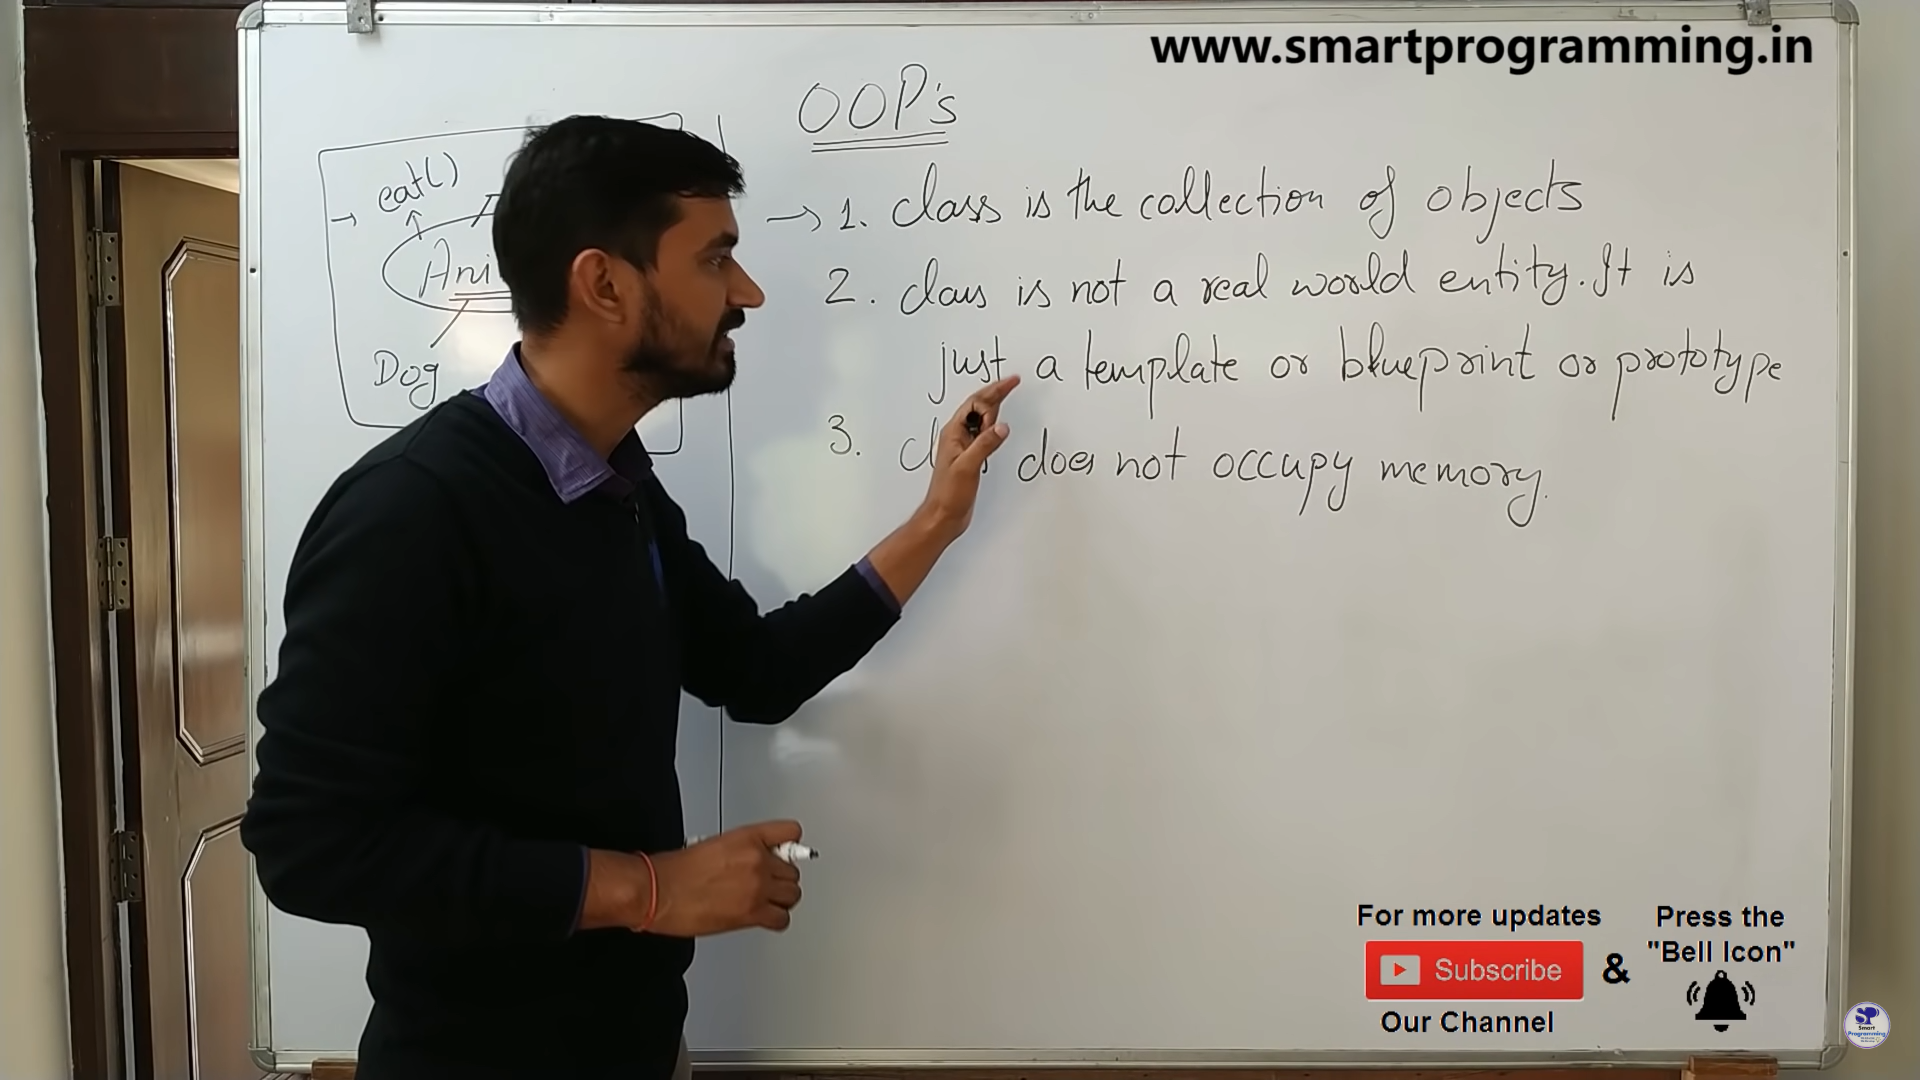 www.smartprogramming.in
OOP's
eat()
Dog
→ 1. class is the collection of objects
2. class is not a real world entity. It is
just a template or blueprint or prototype
3. does not occupy memory.
For more updates
Subscribe
Our Channel
&
Press the
"Bell Icon"
SP
Smart
Programming